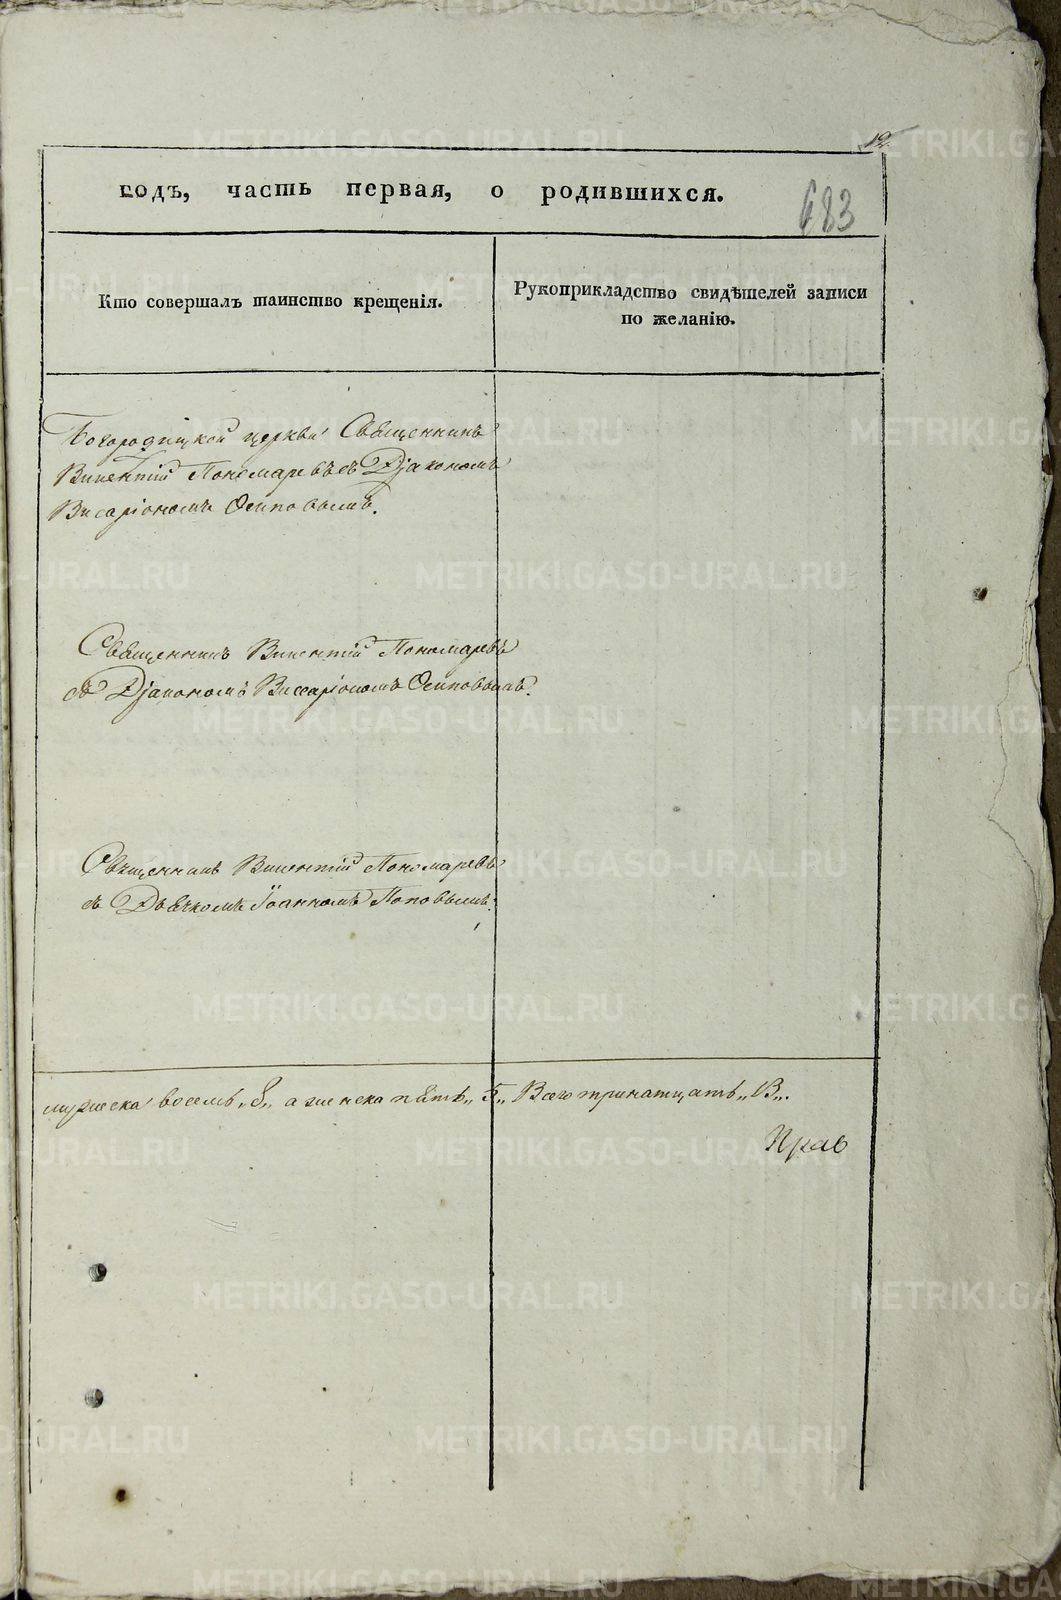 19.
годъ, часть первая, о родившихся.
683
Кто совершалъ таинство крещенія.
Рукоприкладство свидѣтелей записи
по желанію.
Богородицкой церкви Священникъ
Викентій Пономаревъ съ Діакономъ
Висаріономъ Осиповымъ.
Священникъ Викентій Пономаревъ
съ Діакономъ Виссаріономъ Осиповымъ.
Священникъ Викентій Пономаревъ
съ Дьячкомъ Іоанномъ Поповымъ.
мужеска восемь „8„ а женска пять „5„ Всего тринатцать „13„.
METRIKI.GASO-URAL.RU